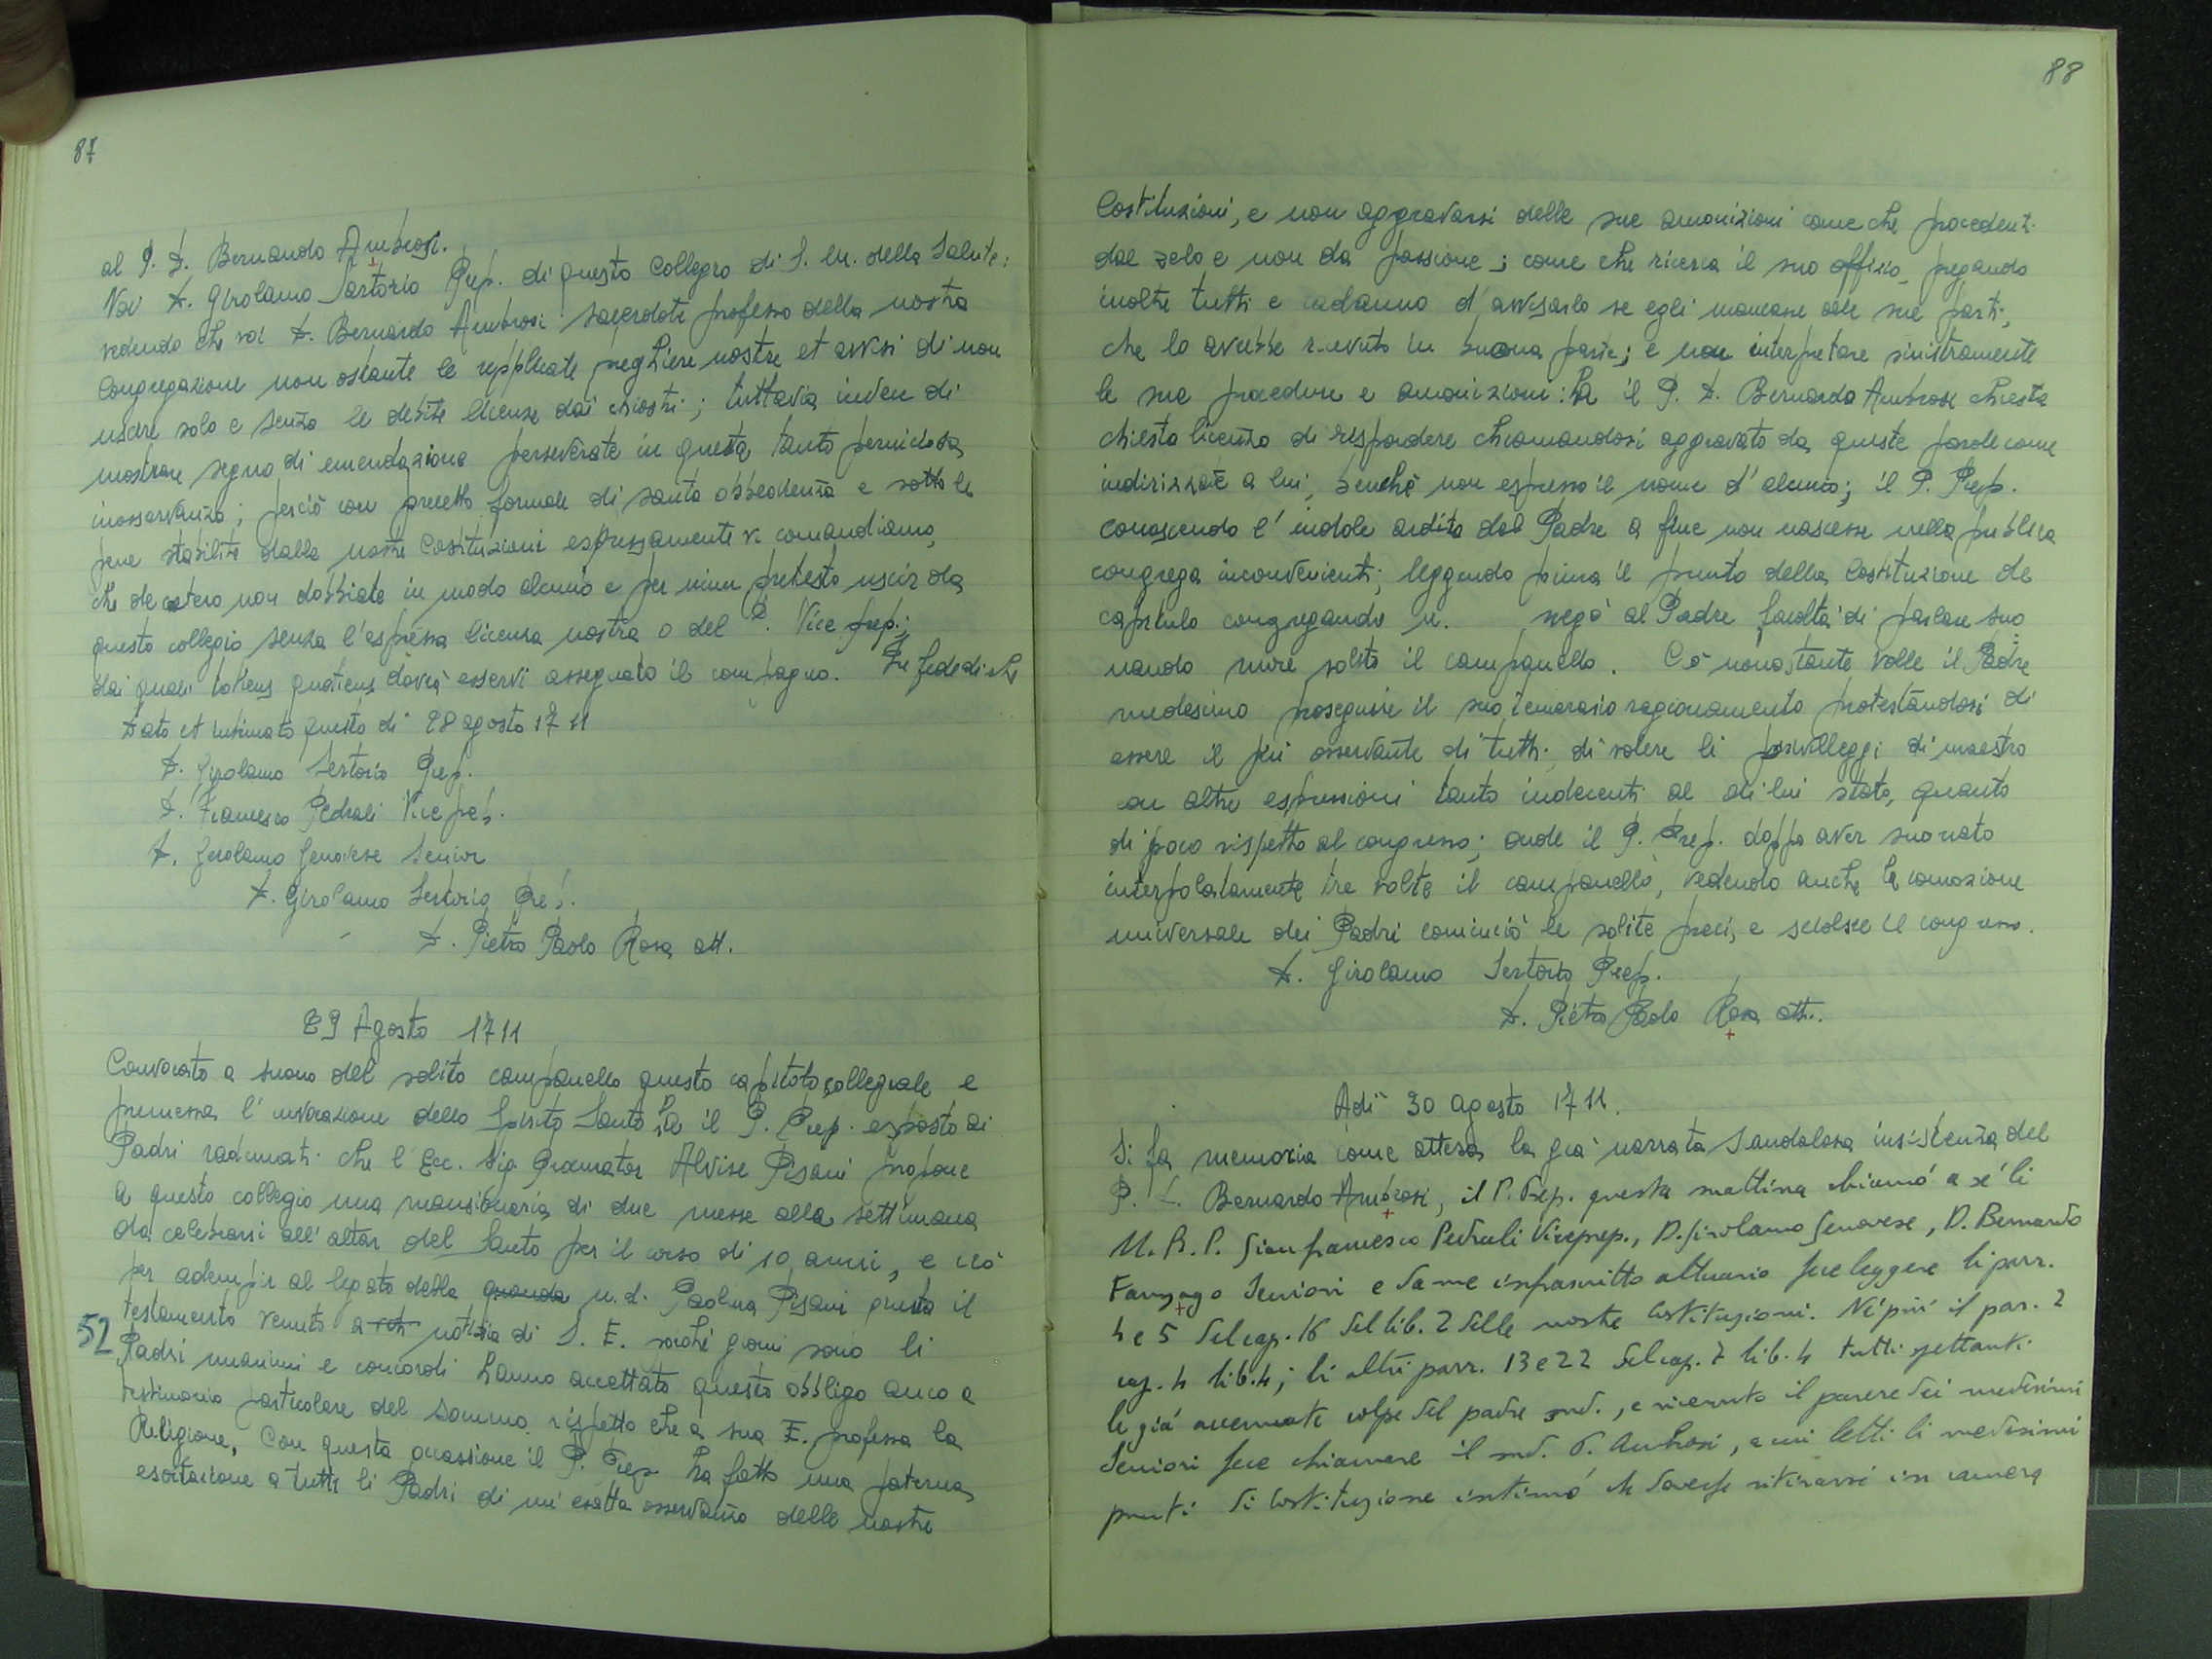 87
al P. D. Bernardo Ambrosi.
Noi D. Girolamo Sartorio Prep. di questo Collegio di S. M. della Salute:
vedendo che voi D. Bernardo Ambrosi sacerdote professo della nostra
Congregazione non ostante le repplicate preghiere nostre et avvisi di non
uscire solo e senza le debite licenze dai chiostri; tuttavia invece di
mostrare segno di emendazione perseverate in questa tanto perniciosa
inosservanza; perciò con precetto formale di santa obbedienza e sotto le
pene stabilite dalle nostre Costituzioni espressamente vi comandiamo,
che de cetero non dobbiate in modo alcuno e per niun pretesto uscir da
questo collegio senza l'espressa licenza nostra o del P. Vice prep.;
dai quali toties quoties dovrà esservi assegnato il compagno. In fede di che
Dato et intimato questo dì 28 agosto 1711
D. Girolamo Sertorio Prep.
D. Francesco Pedrali Vice pre.
D. Girolamo Genovese Senior
D. Girolamo Sertorio Pre.
D. Pietro Paolo Rosa att.
29 Agosto 1711
Convocato a suono del solito campanello questo capitolo collegiale e
premessa l'invocazione dello Spirito Santo ha il P. Prep. esposto ai
Padri radunati che l'Ecc. Sig. Procurator Alvise Pisani propone
a questo collegio una mansionaria di due messe alla settimana
da celebrarsi all'altar del Santo per il corso di 10 anni, e ciò
per adempir al legato della quonda n. d. Paolina Pisani giusta il
testamento venuto a notizia di S. E. pochi giorni sono li
52
Padri unanimi e concordi hanno accettato questo obbligo anco a
testimonio particolare del sommo rispetto che a sua E. professa la
Religione, Con questa occassione il P. Prep. ha fatto una paterna
esortazione a tutti li Padri di un'esatta osservanza delle nostre
88
Costituzioni, e non aggravarsi delle sue amonizioni come che procedenti
dal zelo e non da passione; come che ricerca il suo offizio, pregando
inoltre tutti e cadauno d'avvisarlo se egli mancasse alle sue parti,
che lo avrebbe ricevuto in buona parte; e non interpretare sinistramente
le sue procedure e amonizioni: ha il P. D. Bernardo Ambrosi chiesta
chiesta licenza di rispondere chiamandosi aggravato da queste parole come
indirizzate a lui, benchè non espresso il nome d'alcuno; il P. Prep.
conoscendo l'indole ardita del Padre a fine non nascesse nella publica
congrega inconvenienti; leggendo prima il punto della Costituzione de
capitulo congregando n. negò al Padre facoltà di parlare suo
nando more solito il campanello. Ciò nonostante volle il Padre
medesimo proseguire il suo temerario ragionamento protestandosi di
essere il più osservante di tutti, di volere li privilleggi di maestro
con altre espressioni tanto indecenti al di lui stato, quanto
di poco rispetto al congresso; onde il P. Prep. doppo aver suonato
interpolatamente tre volte il campanello, vedendo anche la comozione
universale dei Padri cominciò le solite preci, e sciolse il congresso.
D. Girolamo Sertorio Prep.
D. Pietro Paolo Rosa att.
Adì 30 agosto 1711.
Si fa memoria come attesa la già narrata scandalosa insistenza del
P. D. Bernardo Ambrosi, il P. Prep. questa mattina chiamò a sé li
M. R. P. Gianfrancesco Pedrali Viceprep., D. Girolamo Genovese, D. Bernardo
Fanzago Seniori e da me infrascritto attuario fece leggere li parr.
4 e 5 del cap. 16 del lib. 2 delle nostre Costituzioni. Né più il par. 2
cap. 4 lib. 4; li altri parr. 13 e 22 del cap. 7 lib. 4 tutti spettanti
le già accennate colpe del padre sud., e ricevuto il parere dei medesimi
Seniori fece chiamare il sud. P. Ambrosi, a cui letti li medesimi
punti di Costituzione intimò che dovesse ritirarsi in camera